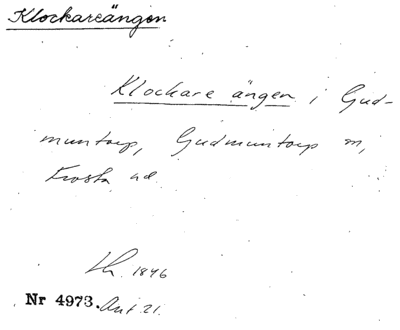 Klockareängen
Klockare ängen i Gud-
muntorp, Gudmuntorp
Frosta
1846
Nr 4973. Ant. 21.